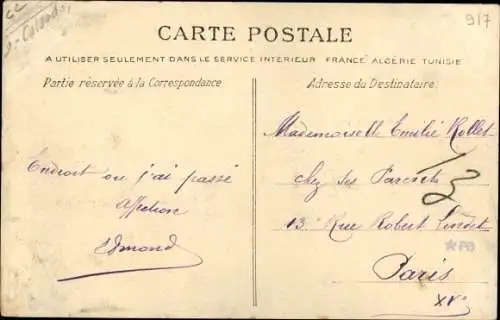 917
CARTE POSTALE
A UTILISER SEULEMENT DANS LE SERVICE INTÉRIEUR FRANCE ALGÉRIE TUNISIE
Partie réservée à la Correspondance
Endroit ou j'ai passé
Affection
Edmond
Adresse du Destinataire
Mademoiselle Emilie Rollet
chez ses Parents
13. Rue Robert Lindet
Paris
XVe